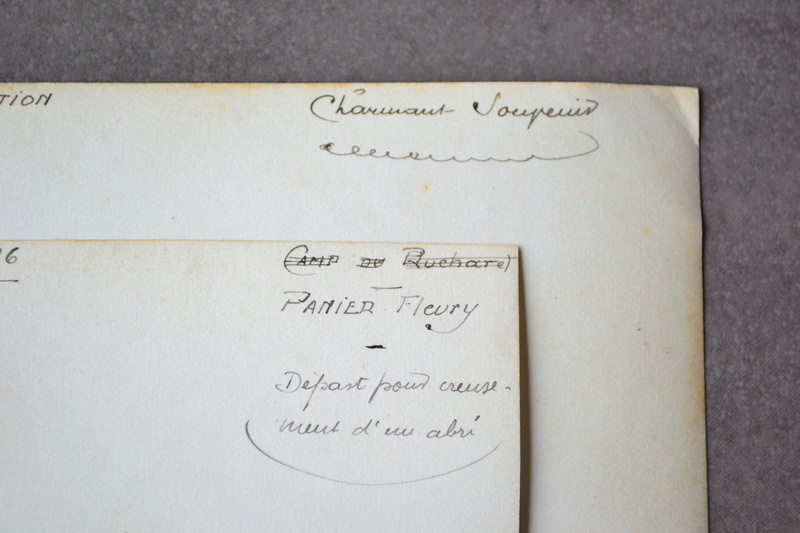 TION
Charmant Souvenir
6
Camp du Ruchard
Panier Fleury
Départ pour creuse-
ment d'un abri